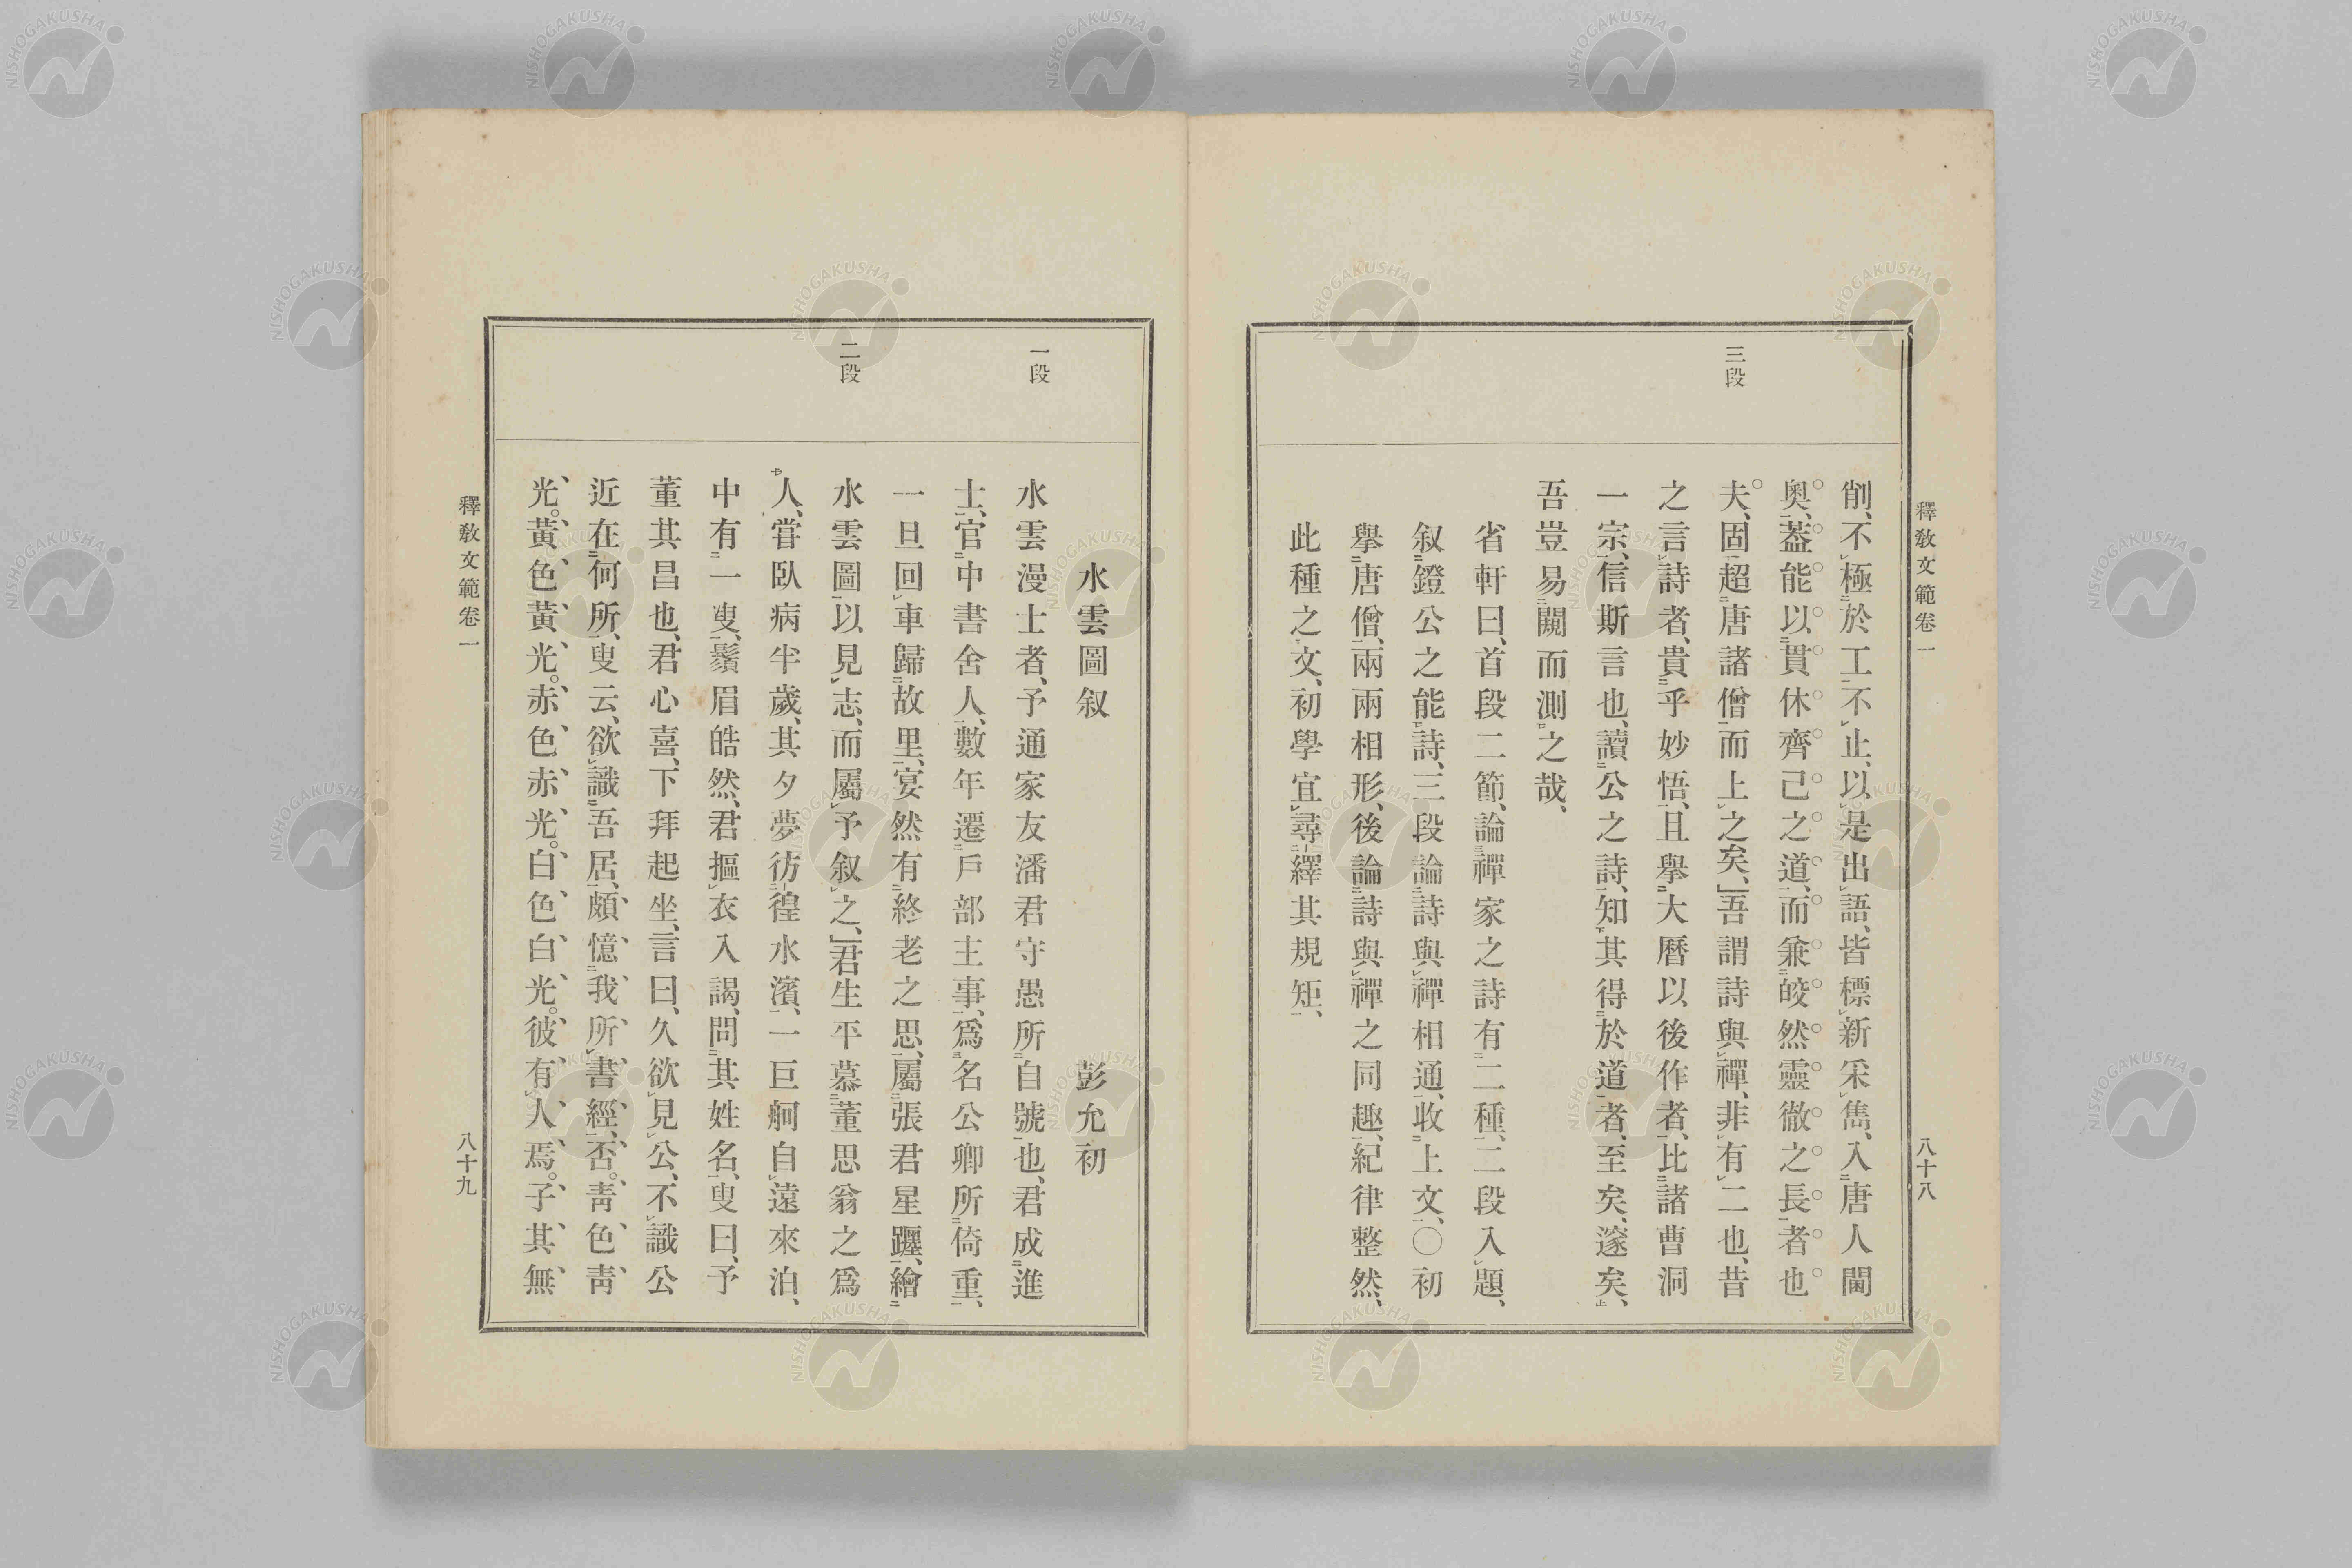 釋敎文範卷一
八十八
三段
削、不極於工不止、以是出語、皆標新采雋、入唐人閫
奧、葢能以貫休齊己之道、而兼皎然靈徹之長者也
夫、固超唐諸僧而上之矣、」吾謂詩與禪、非有二也、昔
之言詩者、貴乎妙悟、且擧大曆以後作者、比諸曹洞
一宗、信斯言也、讀公之詩、知其得於道者、至矣、邃矣、
吾豈易闚而測之哉、
省軒曰、首段二節、論禪家之詩有二種、二段入題、
叙鐙公之能詩、三段論詩與禪相通、收上文、〇初
擧唐僧、兩兩相形、後論詩與禪之同趣、紀律整然、
此種之文、初學宜尋繹其規矩、
水雲圖叙 彭允初
一段
水雲漫士者、予通家友潘君守愚所自號也、君成進
士、官中書舍人、數年遷戶部主事、爲名公卿所倚重、
一旦回車歸故里、宴然有終老之思、屬張君星躔、繪
二段
水雲圖以見志、而屬予叙之、」君生平慕董思翁之爲
人、嘗臥病半歲、其夕夢彷徨水濱、一巨舸自遠來泊、
中有一叟、鬚眉皓然、君摳衣入謁、問其姓名、叟曰、予
董其昌也、君心喜、下拜起坐、言曰、久欲見公、不識公
近在何所、叟云、欲識吾居、頗憶我所書經否。靑色靑
光。黃色黃光。赤色赤光。白色白光。彼有人焉。子其無
釋敎文範卷一
八十九